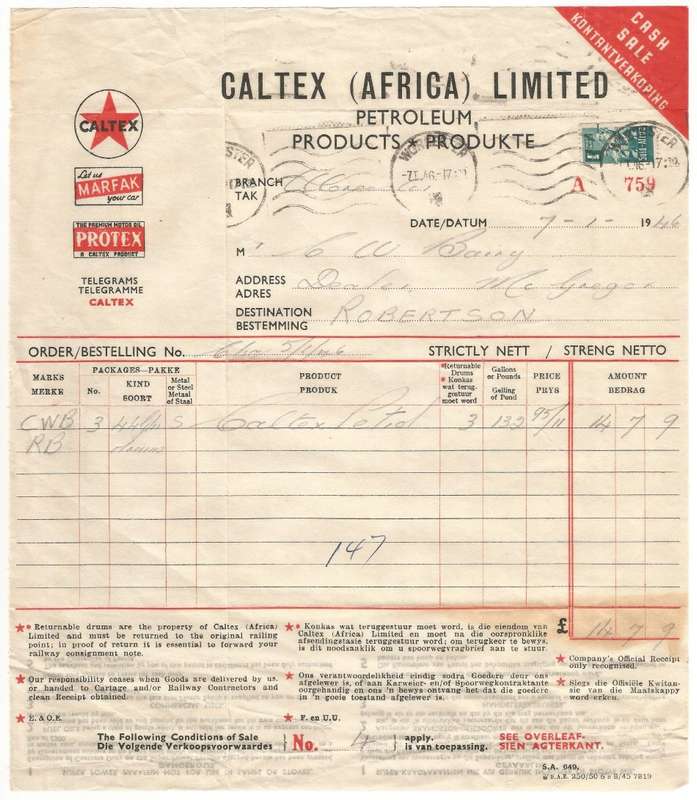 CASH
SALE
KONTANTVERKOPING
CALTEX (AFRICA) LIMITED
PETROLEUM
PRODUCTS ★ PRODUKTE
CALTEX
Let us
MARFAK
your car
THE PREMIUM MOTOR OIL
PROTEX
A CALTEX PRODUCT
TELEGRAMS
TELEGRAMME
CALTEX
BRANCH
TAK
WORCESTER
-7.I.46.-17:30
A 759
DATE/DATUM 7-1-1946
M' C W Barry
ADDRESS
ADRES Dealer McGregor
DESTINATION
BESTEMMING ROBERTSON
ORDER/BESTELLING No. 5/1/46 STRICTLY NETT / STRENG NETTO
MARKS
MERKE
PACKAGES—PAKKE
No.
KIND
SOORT
Metal
or Steel
Metaal
of Staal
PRODUCT
PRODUK
Returnable
Drums
Konkas
wat terug-
gestuur
moet word
Gallons
or Pounds
Gelling
of Pond
PRICE
PRYS
AMOUNT
BEDRAG
CWB 3 S Caltex 3 132 95/11 14 7 9
RB drums
147
£ 14 7 9
★* Returnable drums are the property of Caltex (Africa)
Limited and must be returned to the original railing
point; in proof of return it is essential to forward your
railway consignment note.
★ Our responsibility ceases when Goods are delivered by us.
or handed to Cartage and/or Railway Contractors and
clean Receipt obtained.
★ E. & O.E.
★* Konkas wat teruggestuur moet word, is die eiendom van
Caltex (Africa) Limited en moet na die oorspronklike
afsendingstasie teruggestuur word; om terugkeer te bewys,
is dit noodsaaklik om u spoorwegvragbrief aan te stuur.
★ Ons verantwoordelikheid eindig sodra Goedere deur ons
afgelewer is, of aan Karweier- en/of Spoorwegkontraktante
oorgehandig en ons 'n bewys ontvang het dat die goedere
in 'n goeie toestand afgelewer is.
★ F. en U.U.
★ Company's Official Receipt
only recognised.
★ Slegs die Offisiële Kwitan-
sie van die Maatskappy
word erken.
The Following Conditions of Sale
Die Volgende Verkoopsvoorwaardes
No. 4
apply.
is van toepassing.
SEE OVERLEAF-
SIEN AGTERKANT.
S.A. 649.